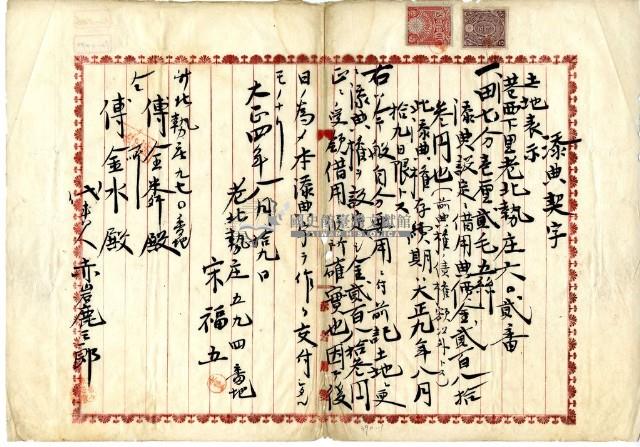 添典契字
土地表示
港西下里老北勢庄六〇貳番
一田七分壱厘貳毛五絲
添典設定借用典價金貳百八拾
叁円也
此添典權存續期大正九年八月
拾九日限トス
右今般自分費用ニ付前記土地更
添典權ヲ設定シ金貳百八拾叁円
正ニ受領借用所確實也因テ後
日ノ為メ本添典字ヲ作リ交付
モノナリ
大正四年八月拾九日
老北勢庄五九四番地
宋福五
北勢庄九七〇番地
傅金 殿
傅金水殿
赤岩鹿三郎
臺灣史檔案館